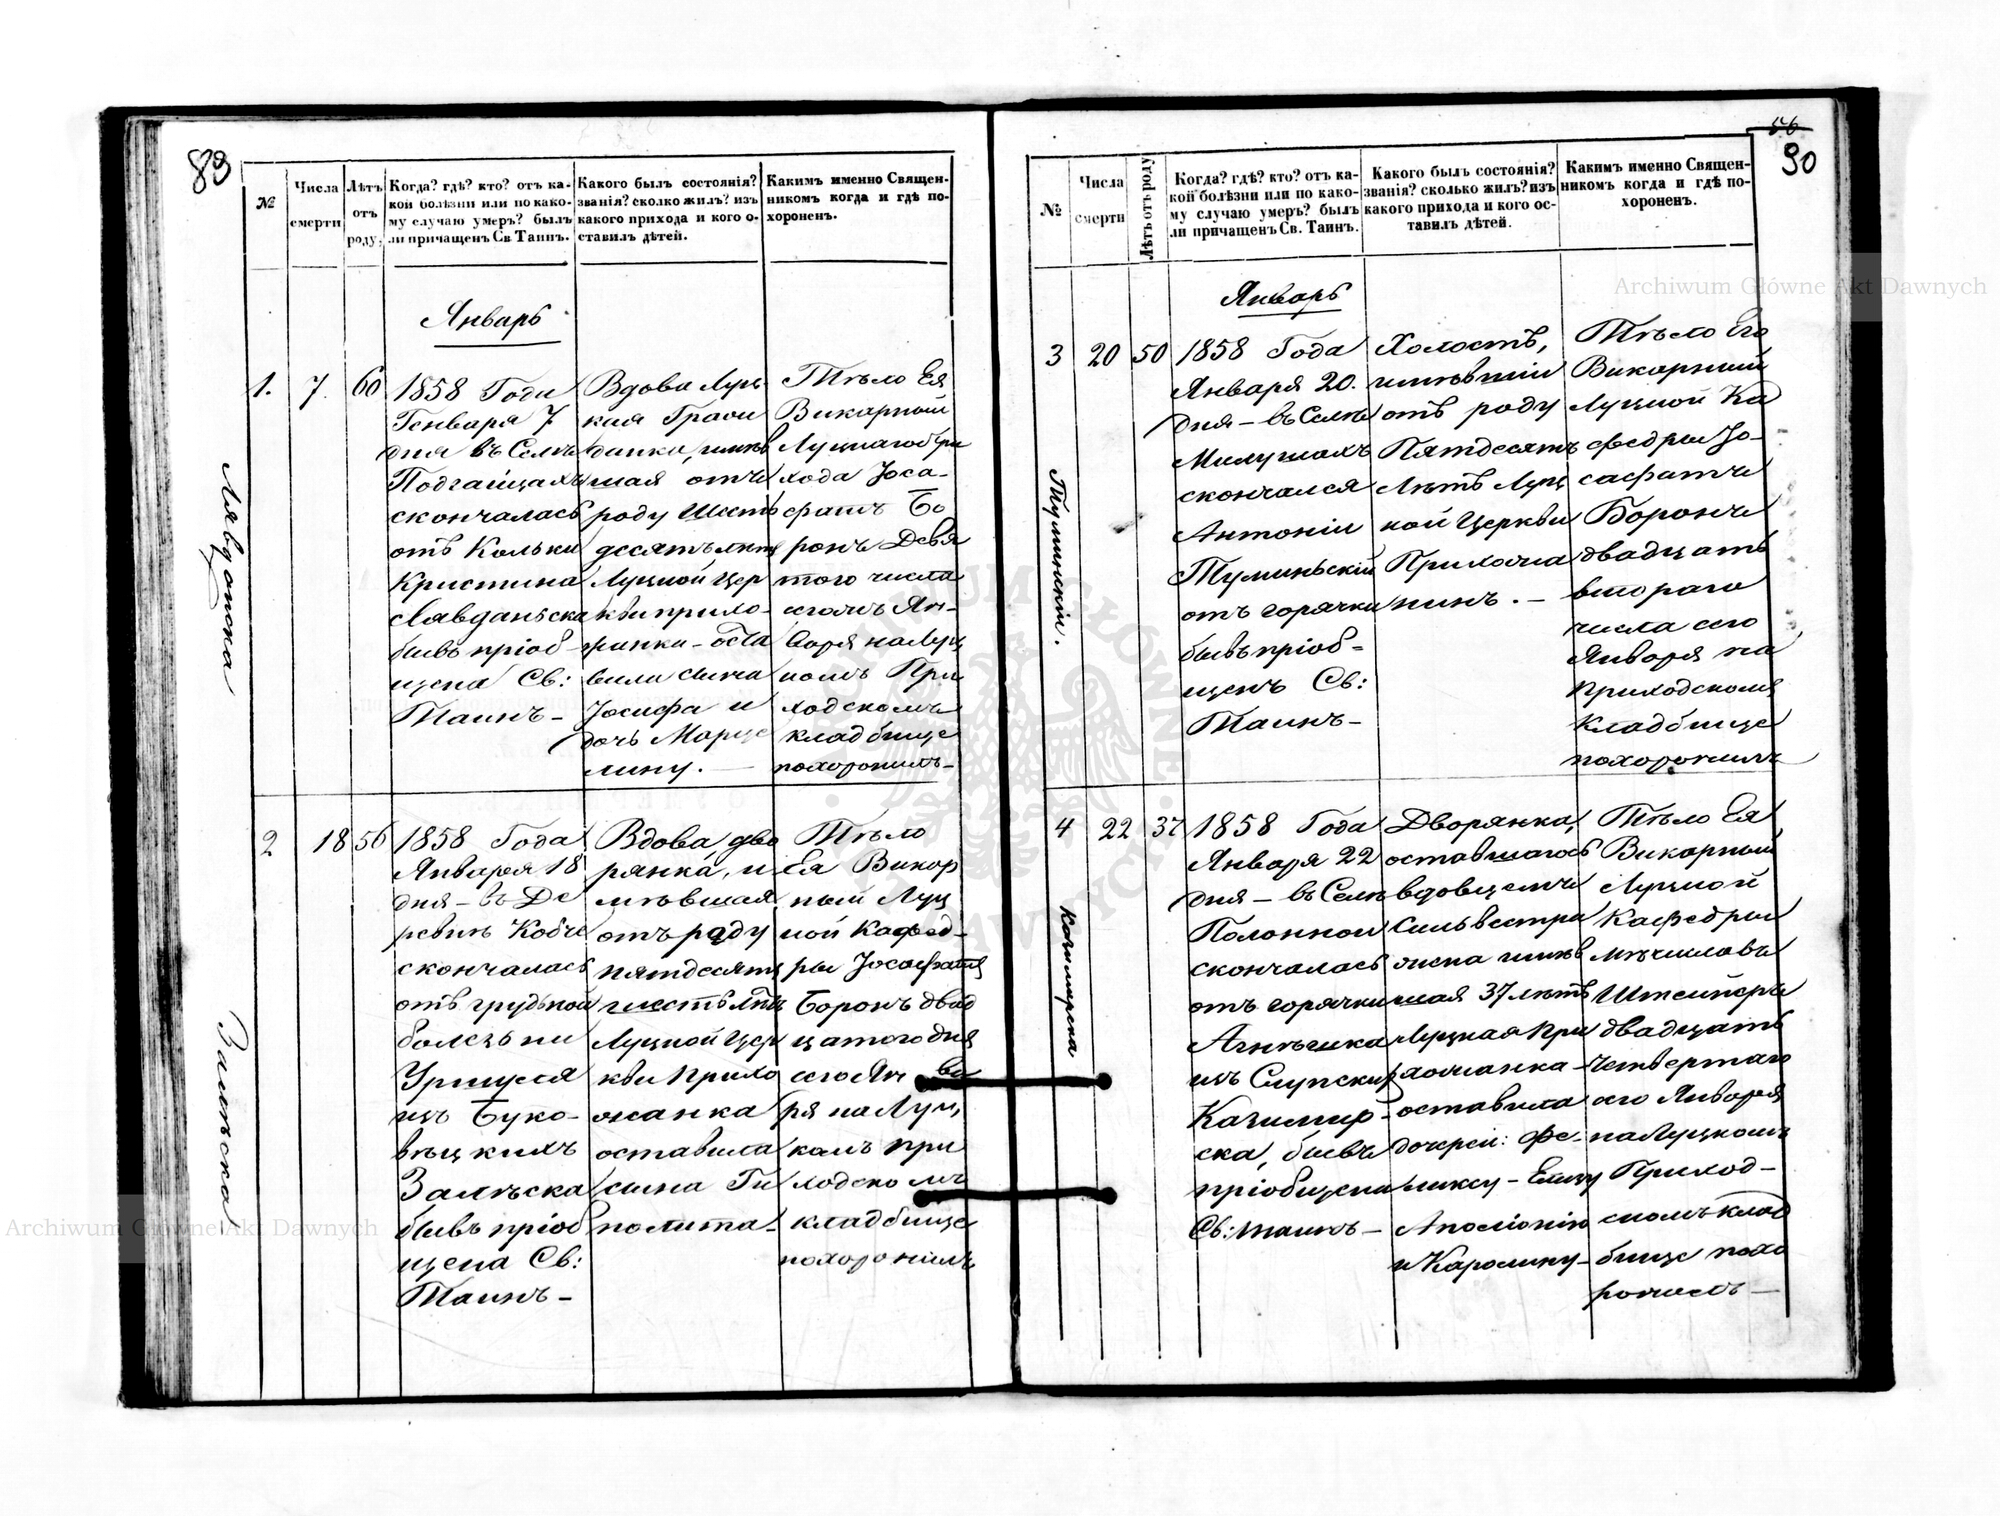 83
№
Числа
смерти
Лѣтъ
отъ
роду,
Когда? гдѣ? кто? отъ ка-
кой болѣзни или по како-
му случаю умеръ? былъ
ли причащенъ Св. Таинъ.
Какого былъ состоянія?
званія? сколко жилъ? изъ
какого прихода и кого о-
ставилъ дѣтей.
Какимъ именно Священ-
никомъ когда и гдѣ по-
хороненъ.
Январь
Лявданска
1.
7.
60
1858 Года
Генваря 7
дня въ Селѣ
Подгайцахъ
скончалась
отъ Кольки
Кристина
Лявданьска
бывъ пріоб-
щена Св:
Таинъ-
Вдова Луц-
кая Граж
данка, имѣв
шая отъ
роду Шесть
десятълѣтъ
Луцкой Цер
кви прихо-
жанка - оста
вила сына
Іосифа и
дочь Марце
лину. —
Тѣло Ея
Викарный
Луцкаго При
хода Іоса-
фатъ Бо
ронъ Девя
того числа
сегожъ Ян-
варя на Луц
комъ При
ходскомъ
кладбище
похоронилъ-
Залѣска
2
18
56
1858 Года
Января 18
дня - въ Де
ревнѣ Кобче
скончалась
отъ грудной
болезни
Уршуля
изъ Буко-
вѣцкихъ
Залѣска
бывъ пріоб
щена Св:
Таинъ-
Вдова дво
рянка, и
мѣвшая
отъ роду
пятдесятъ
шесть лѣтъ
Луцкой Цер
кви Прихо
жанка
оставила
сына Ги
полита-
Тѣло
Ея Викар
ный Луц
кой Кафед-
ры Іосафатъ
Боронъ двад
цатого дня
сего Ян ва
ря на Луц,
комъ при
ходскомъ
кладбище
похоронилъ
56
90
№
Числа
смерти
Лѣтъ отъ роду
Когда? гдѣ? кто? отъ ка-
кой болѣзни или по како-
му случаю умеръ? былъ
ли причащенъ Св. Таинъ.
Какого былъ состоянія?
званія? сколько жилъ? изъ
какого прихода и кого ос-
тавилъ дѣтей.
Какимъ именно Священ-
никомъ когда и гдѣ по-
хороненъ.
Январь
Туминскій.
3
20
50
1858 Года
Января 20.
дня - въ Селѣ
Милушахъ
скончался
Антоній
Туминьскій
отъ горячки
бывъ пріоб-
щенъ Св:
Таинъ-
Холостъ,
имѣвшій
отъ роду
Пятдесятъ
Лѣтъ Луц
кой Церкви
Прихожа
нинъ. -
Тѣло Его
Викарный
Луцкой Ка
федры Іо-
сафатъ
Боронъ
двадцать
втораго
числа сего
Января на
Приходскомъ
Кладбище
похоронилъ
Казимирска
4
22
37
1858 Года
Января 22
дня - въ Селѣ
Полонной
скончалась
отъ горячки
Агнѣшка
изъ Слупскихъ
Казимир-
ска, бывъ
пріобщена
Св: таинъ -
Дворянка,
оставшагось
вдовцемъ
Сильвестра
жена имѣв
шая 37 лѣтъ
Луцкая При
хожанка -
оставила
дочерей: Фе-
ликсу -
Аполіонію
и Каролину-
Тѣло Ея
Викарный
Луцкой
Кафедры
Мѣчиславъ
двадцать
четвертаго
сего Января
на Луцкомъ
Приход-
скомъ клад
бище похо
ронилъ -
Archiwum Główne Akt Dawnych
Archiwum Główne Akt Dawnych